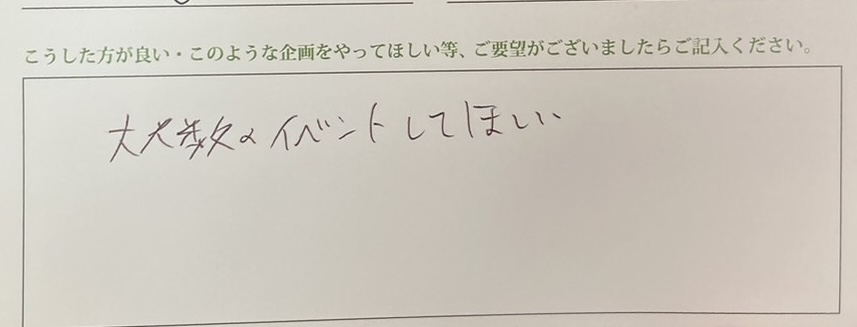 こうした方が良い・このような企画をやってほしい等、ご要望がございましたらご記入ください。
数のイベントしてほしい